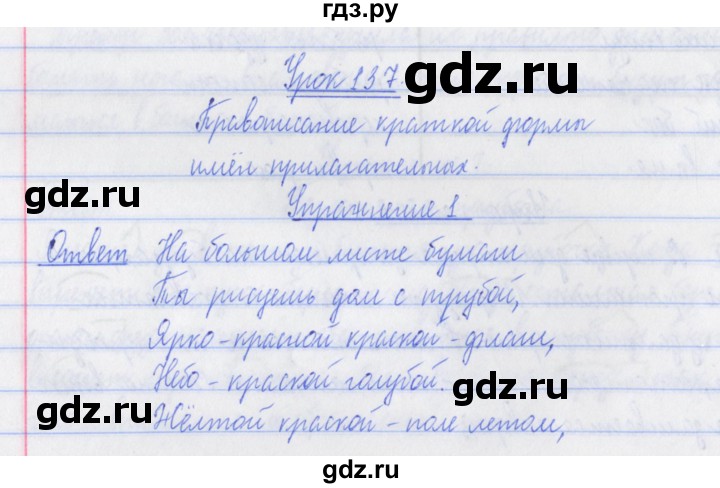 гдз.ру
Урок 137
gdz.ru
Правописание краткой формы
имён прилагательных.
gdz.ru gdz.ru
Упражнение 1
Ответ На большом листе бумаги
Ты рисуешь дом с трубой,
Ярко-красной краской - флаги,
Небо - краской голубой.
gdz.ru gdz.ru
Жёлтой краской - поле летом,
gdz.ru